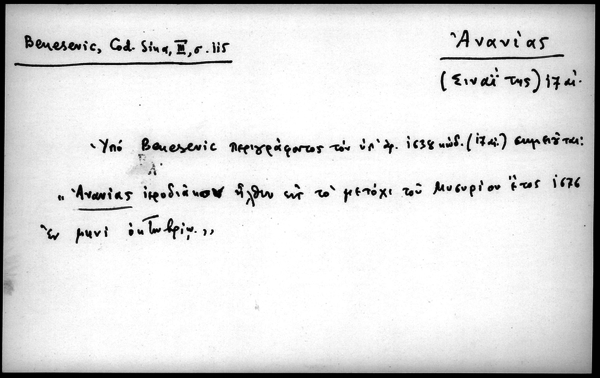 Benesevic, Cod. Sina, III, σ. 115
Ἀνανίας
(Σιναΐτης) 17 αἰ.
Ὑπὸ Benesevic περιγράφοντος τὸν ὑπ' ἀρ. 1638 κώδ. (17 αἰ.) σημειοῦται:
„Ἀνανίας ἱεροδιάκον ἦλθον εἰς τὸ μετόχι τοῦ Μυσυρίου ἔτος 1676
ἐν μηνὶ ὀκτωβρίῳ.„